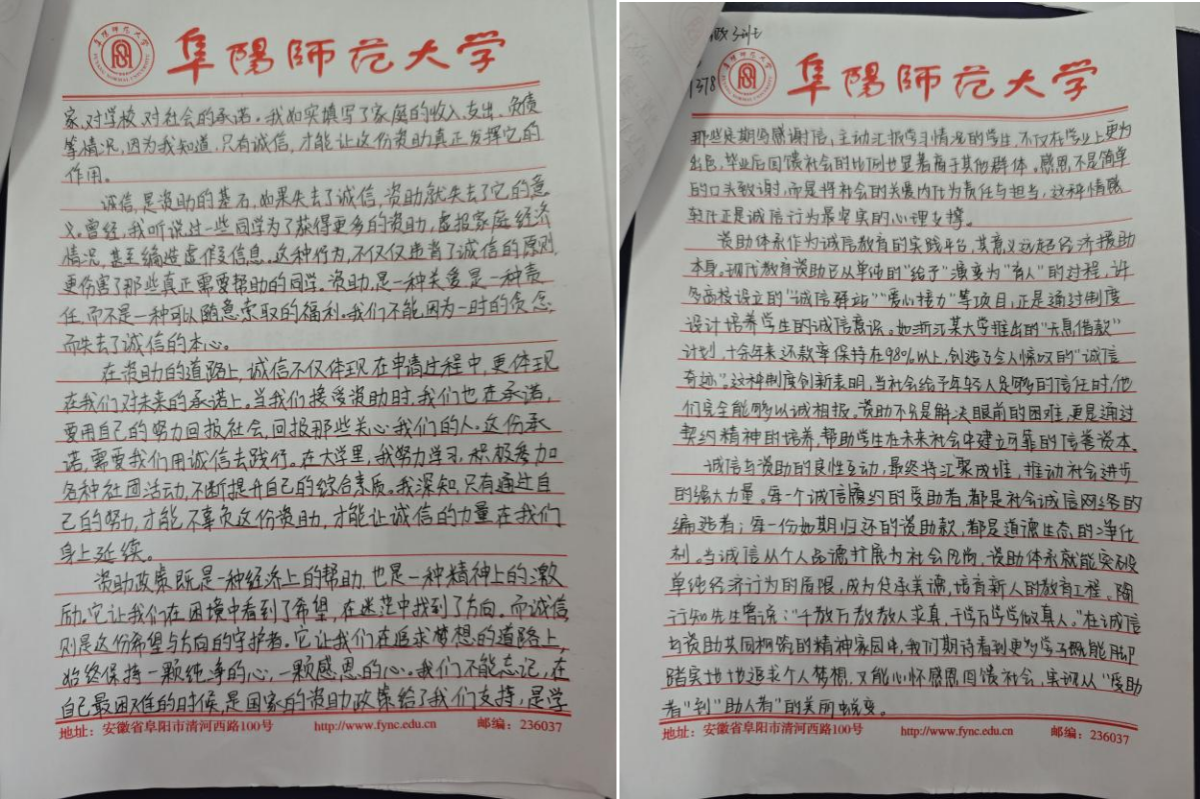 阜陽師范大学
家、对学校、对社会的承诺。我如实填写了家庭的收入、支出、负债
等情况,因为我知道,只有诚信,才能让这份资助真正发挥它的
作用。
诚信,是资助的基石,如果失去了诚信,资助就失去了它的意
义。曾经,我听说过一些同学为了获得更多的资助,虚报家庭经济
情况,甚至编造虚假信息。这种行为,不仅仅违背了诚信的原则,
更伤害了那些真正需要帮助的同学。资助,是一种关爱是一种责
任,而不是一种可以随意索取的福利。我们不能因为一时的贪念,
而失去了诚信的本心。
在资助的道路上,诚信不仅体现在申请过程中,更体现
在我们对未来的承诺上。当我们接受资助时,我们也在承诺,
要用自己的努力回报社会,回报那些关心我们的人。这份承
诺,需要我们用诚信去践行。在大学里,我努力学习,积极参加
各种社团活动,不断提升自己的综合素质。我深知,只有通过自
己的努力,才能不辜负这份资助,才能让诚信的力量在我们
身上延续。
资助政策既是一种经济上的帮助,也是一种精神上的激
励。它让我们在困境中看到了希望,在迷茫中找到了方向。而诚信,
则是这份希望与方向的守护者。它让我们在追求梦想的道路上,
始终保持一颗纯净的心,一颗感恩的心。我们不能忘记,在
自己最困难的时候,是国家的资助政策给了我们支持,是学
地址:安徽省阜阳市清河西路100号 http://www.fync.edu.cn 邮编:236037
1378
阜陽師范大学
那些定期写感谢信,主动汇报学习情况的学生,不仅在学业上更为
出色,毕业后回馈社会的比例也显著高于其他群体。感恩不是简单
的口头致谢,而是将社会的关爱内化为责任与担当,这种情感
转化正是诚信行为最坚实的心理支撑。
资助体系作为诚信教育的实践平台,其意义远超经济援助
本身。现代教育资助已从单纯的"给予"演变为"育人"的过程,许
多高校设立的"诚信驿站""爱心接力"等项目,正是通过制度
设计培养学生的诚信意识。如浙江某大学推出的"无息借款"
计划,十余年来还款率保持在98%以上,创造了令人惊叹的"诚信
奇迹"。这种制度创新表明,当社会给予年轻人足够的信任时,他
们完全能够以诚相报。资助不只是解决眼前的困难,更是通过
契约精神的培养,帮助学生在未来社会中建立可靠的信誉资本。
诚信与资助的良性互动,最终将汇聚成推动社会进步
的强大力量。每一个诚信履约的受助者,都是社会诚信网络的
编造者;每一份如期归还的资助款,都是道德生态的净化
剂。当诚信从个人品德扩展为社会风尚,资助体系就能突破
单纯经济行为的局限,成为传承美德,培育新人的教育工程。陶
行知先生曾说:"千教万教教人求真,千学万学学做真人。"在诚信
与资助共同构筑的精神家园中,我们期待看到更多学子既能脚
踏实地地追求个人梦想,又能心怀感恩回馈社会,实现从"受助
者"到"助人者"的美丽蜕变。
地址:安徽省阜阳市清河西路100号 http://www.fync.edu.cn 邮编:236037